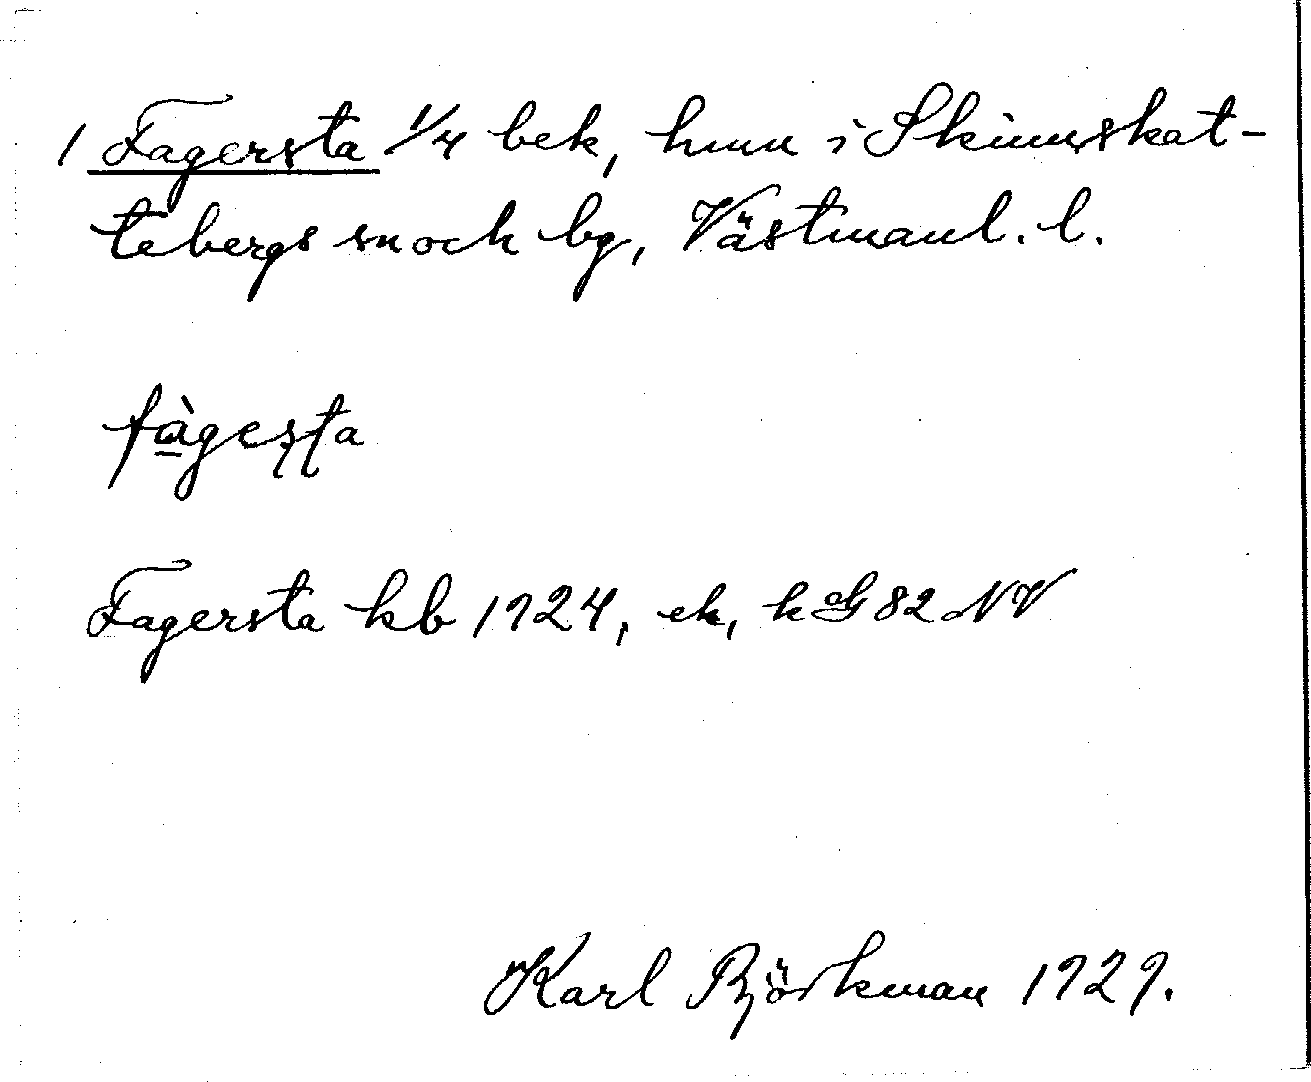 1 Fagersta 1/4 bek, hmn i Skinnskat-
tebergs sn och bg, Västmanl. l.
fàgesta
Fagersta kb 1924, ek, k G 82 NV
Karl Björkman 1929.